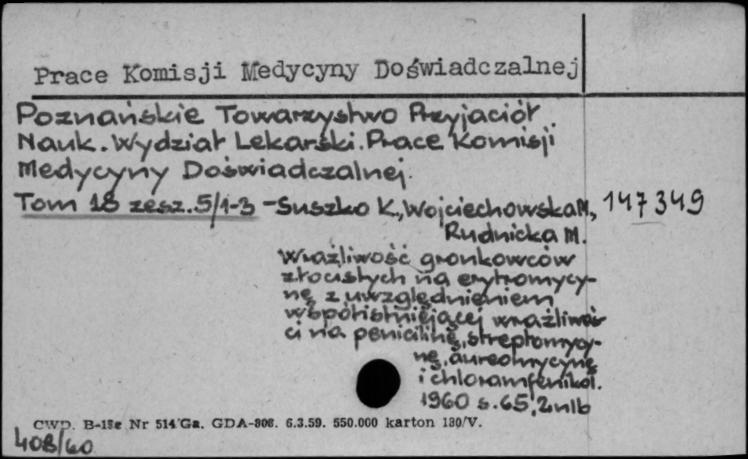 Prace Komisji Medycyny Doświadczalnej
Poznańskie Towarzystwo Przyjaciół
Nauk. Wydział Lekarski. Prace Komisji
Medycyny Doświadczalnej.
Tom 18 zesz. 5/1-3 - Suszko K., Wojciechowska M., 147349
Rudnicka M.
Wrażliwość gronkowców
złocistych na erytromycy-
nę z uwzględnieniem
współistniejącej wrażliwoś-
ci na penicilinę, streptomycy-
nę, aureomycynę
i chloramfenikol.
1960 s. 65, 2nlb
CWD. B-18c Nr 514/Ga. GDA-806. 6.3.59. 550.000 karton 180/V.
408/60